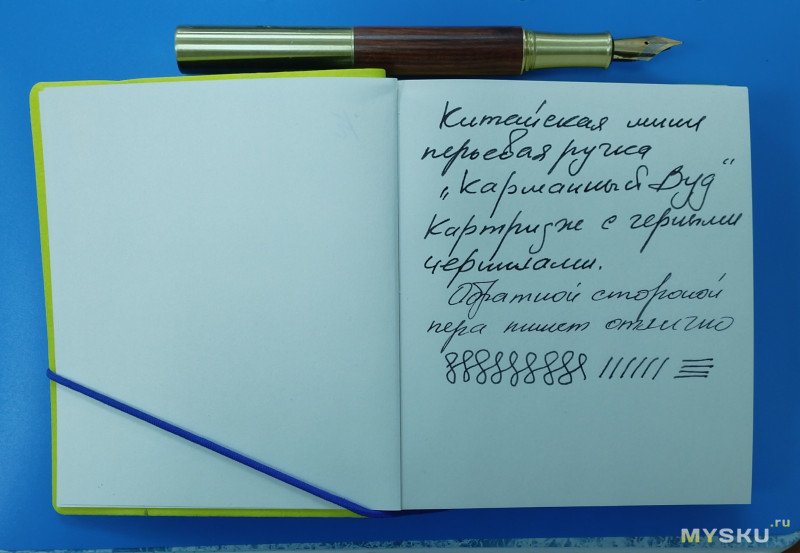 Китайская мини
перьевая ручка
„Карманный Вуд“
Картридж с черными
чернилами.
Обратной стороной
пера пишет отлично
MYSKU.ru